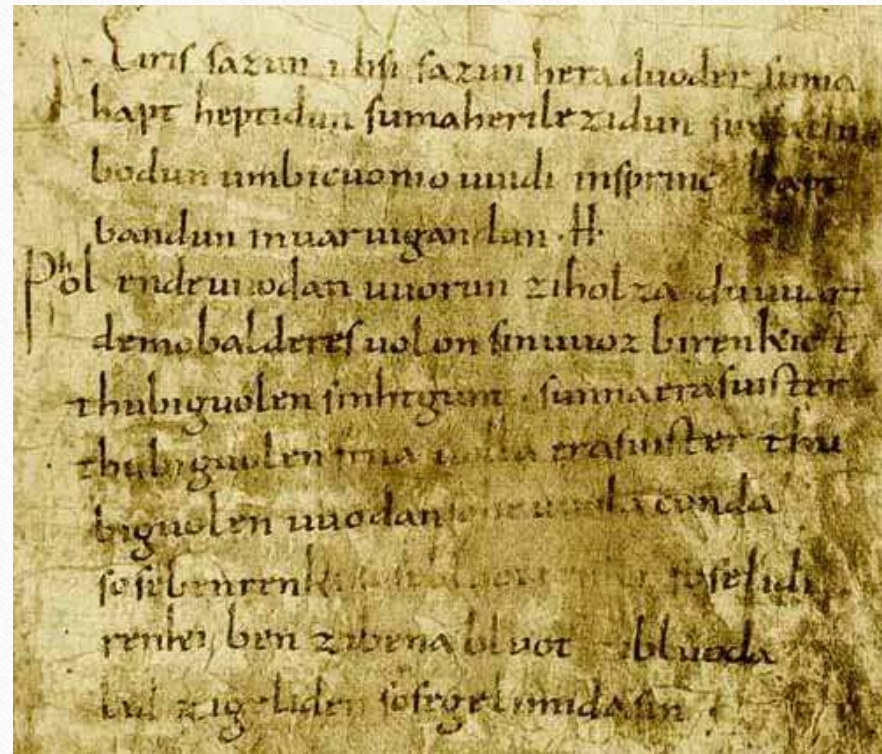 Eiris sazun idisi sazun hera duoder suma
hapt heptidun sumaherilezidun sumaclu
bodun umbicuonio uuidi insprinc hapt
bandun inuaruigandun ·H·
Phol endeuuodan uuorun ziholza duuuart
demobalderes uolon sinuuoz birenkict
thubiguolen sinhtgunt · sunnaerasuister
thubiguolen friia uolla erasuister thu
biguolen uuodan sohe uuola conda
sosebenrenki sosebluotrenki soselidi
renki ben zibena bluot zibluoda
lid zigeliden sosegelimidasin ·